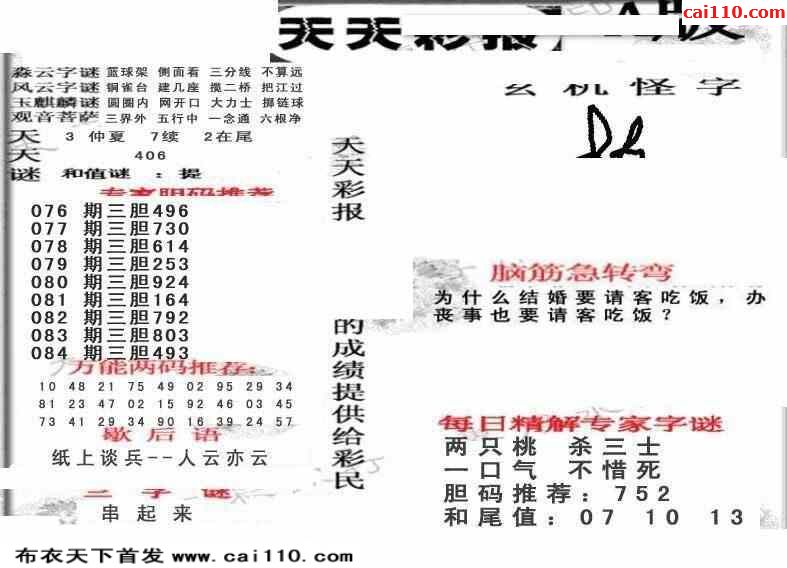 cai110.com
天天彩报
版
森云字谜 篮球架 侧面看 三分线 不算远
风云字谜 铜雀台 建几座 揽二桥 把江过
玉麒麟谜 圆圈内 网开口 大力士 掷链球
观音菩萨 三界外 五行中 一念通 六根净
天 3 仲夏 7续 2在尾
天 406
谜 和值谜 : 提
专家胆码推荐
076 期三胆496
077 期三胆730
078 期三胆614
079 期三胆253
080 期三胆924
081 期三胆164
082 期三胆792
083 期三胆803
084 期三胆493
万能两码推荐:
10 48 21 75 49 02 95 29 34
81 23 47 02 15 92 46 03 45
73 41 29 34 90 16 39 24 57
歇后语
纸上谈兵--人云亦云
三字谜
串起来
布衣天下首发 www.cai110.com
天天彩报
的成绩提供给彩民
玄机怪字
脑筋急转弯
为什么结婚要请客吃饭，办
丧事也要请客吃饭？
每日精解专家字谜
两只桃 杀三士
一口气 不惜死
胆码推荐：752
和尾值：07 10 13